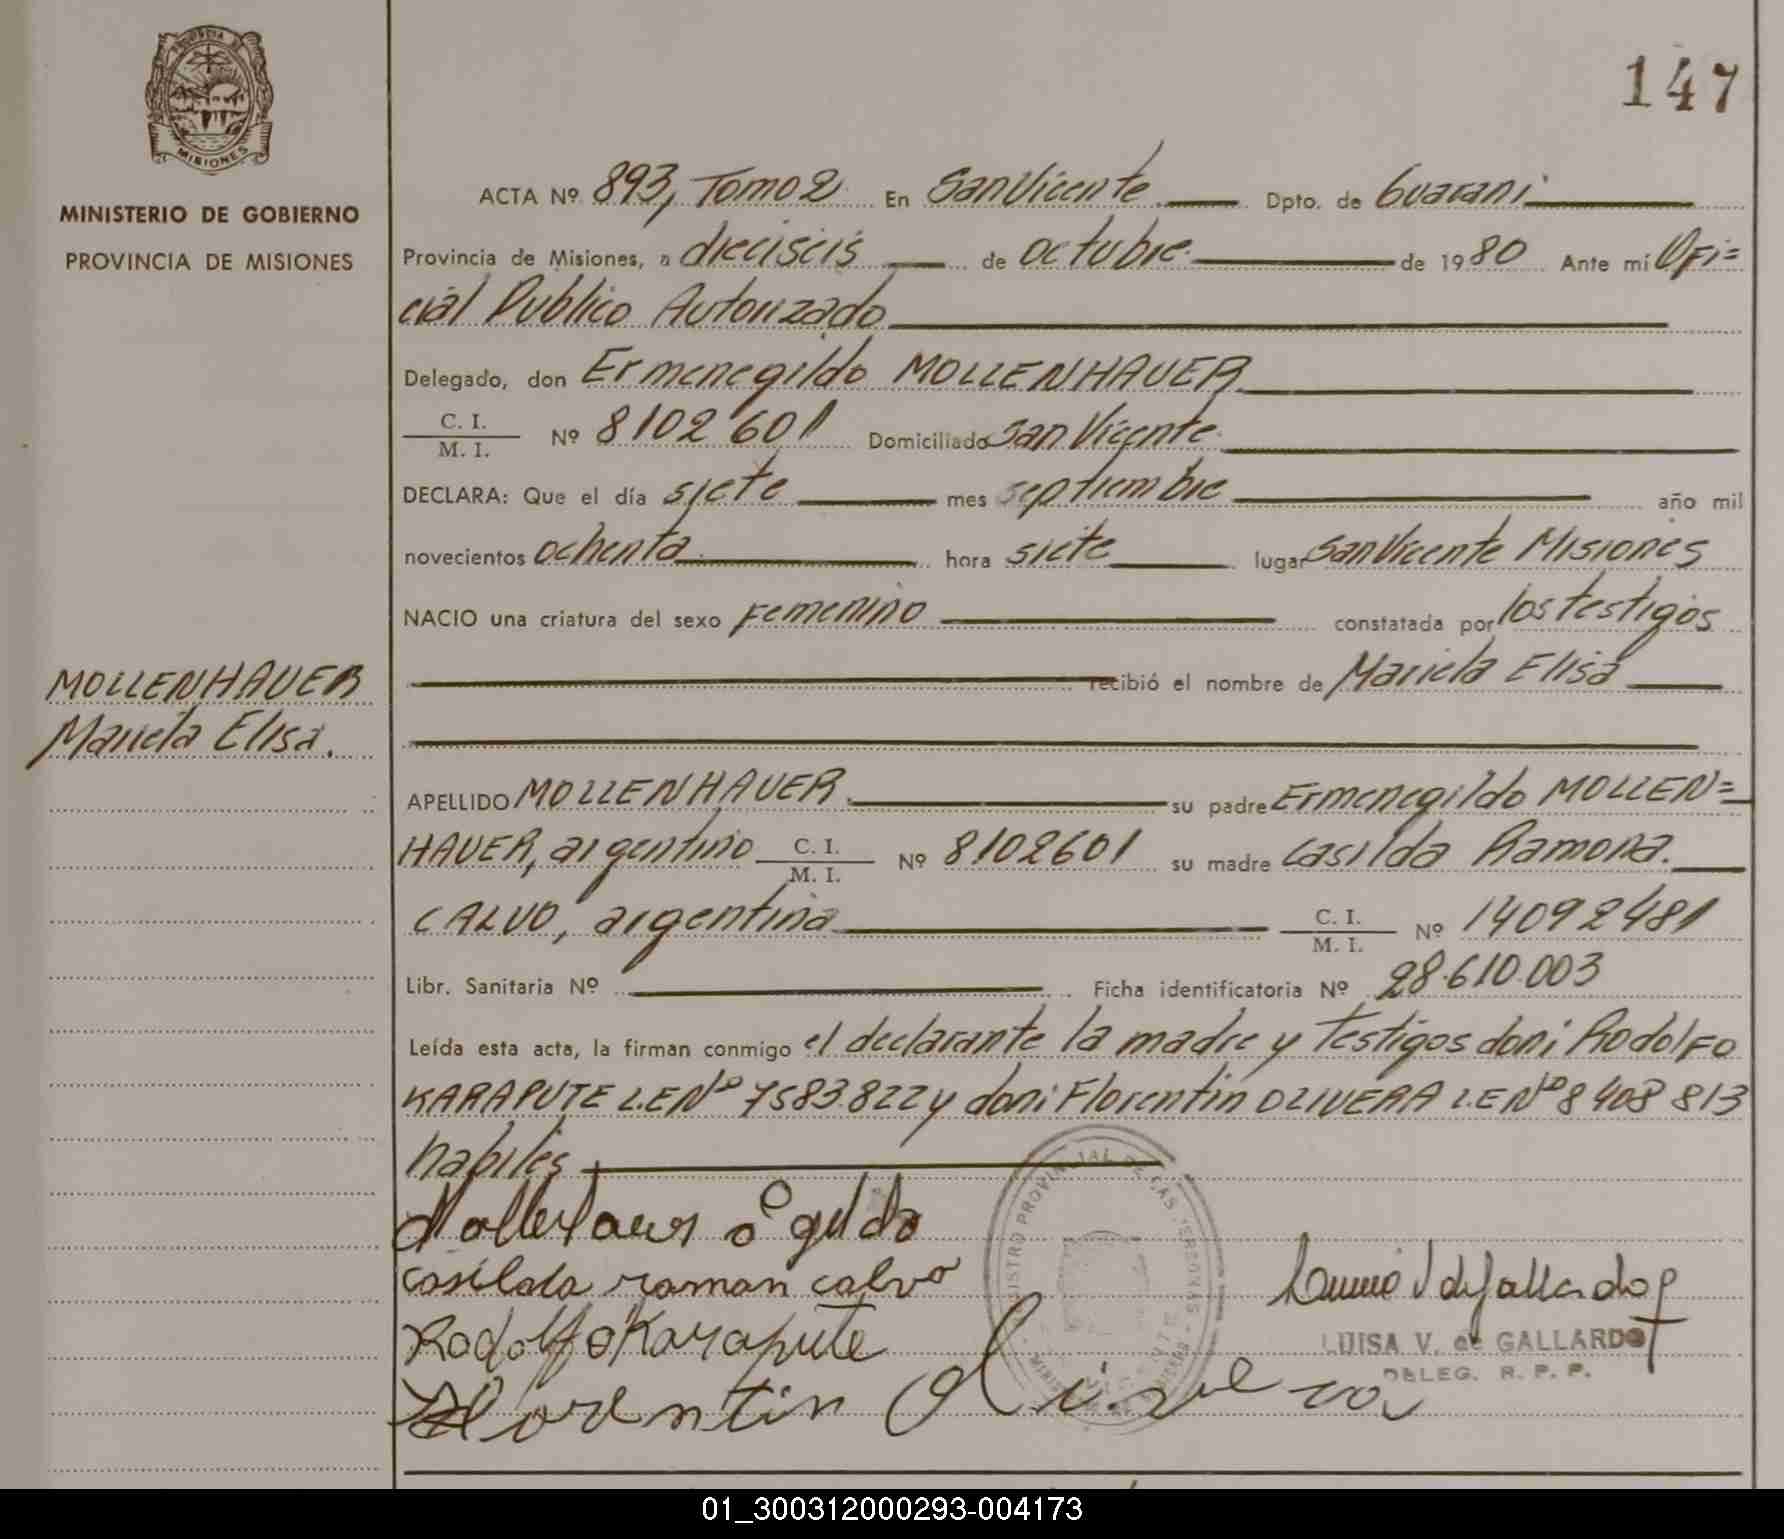 147
PROVINCIA DE
MISIONES
MINISTERIO DE GOBIERNO
PROVINCIA DE MISIONES
ACTA Nº 893, Tomo 2 En San Vicente Dpto. de Guarani
Provincia de Misiones, a dieciseis de octubre de 1980 Ante mí Ofi=
cial Publico Autorizado
Delegado, don Ermenegildo MOLLENHAUER
C. I.
M. I. Nº 8102601 Domiciliado San Vicente
DECLARA: Que el día siete mes septiembre año mil
novecientos ochenta hora siete lugar San Vicente Misiones
NACIO una criatura del sexo Femenino constatada por los testigos
recibió el nombre de Mariela Elisa
MOLLENHAUER
Mariela Elisa.
APELLIDO MOLLENHAUER su padre Ermenegildo MOLLEN=
HAUER, argentino C. I. M. I. Nº 8102601 su madre Casilda Ramona.
CALVO, argentina C. I. M. I. Nº 14092481
Libr. Sanitaria Nº Ficha identificatoria Nº 28.610.003
Leída esta acta, la firman conmigo el declarante la madre y testigos don: Rodolfo
KARAPUTE L.E Nº 7583.822 y don: Florentin OLIVERA L E Nº 8 408 813
habiles
gildo
casilda raman calvo
Rodolfo Karapute
Florentin Olivera
LUISA V. de GALLARDO
DELEG. R. P. P.
01_300312000293-004173